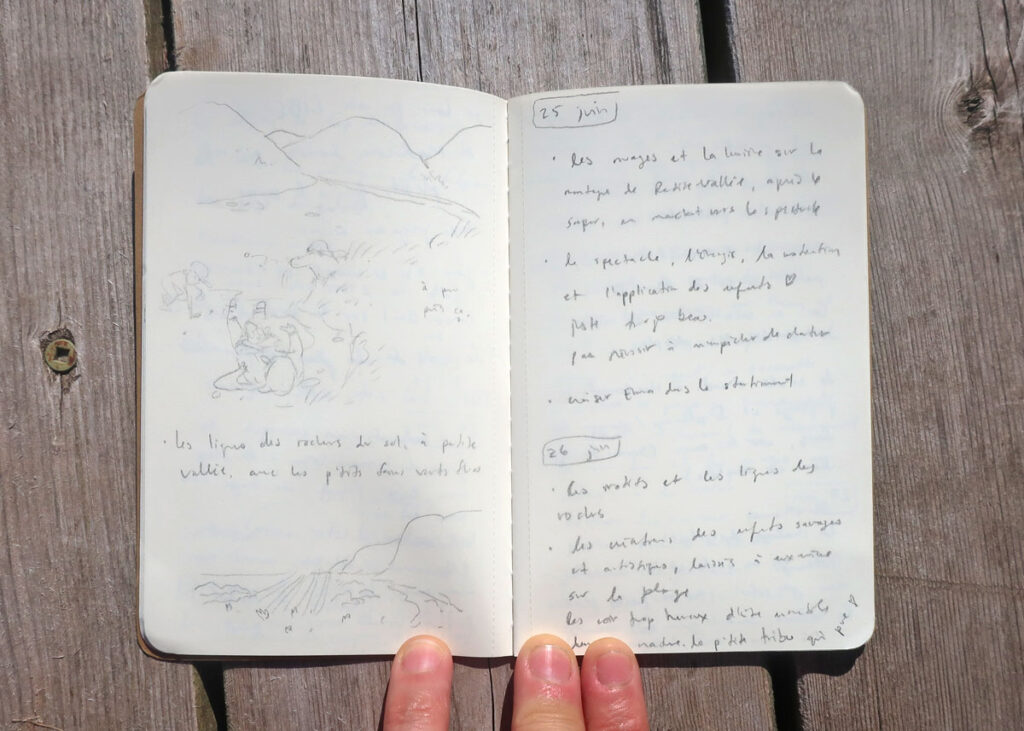 à peu
près ça.
· les lignes des rochers du sol, à petite
vallée, avec les p'tits fous verts fluo
25 juin
· les nuages et la lumière sur la
montagne de Petite-Vallée, après le
souper, en marchant vers le spectacle
· le spectacle, l'énergie, la
et l'application des enfants ♡
juste trop beau.
pas réussir à m'empêcher de chanter
· croiser Emma dans le stationnement
26 juin
· les motifs et les lignes des
roches
· les créations des enfants sauvages
et artistiques, laissés à eux-même
sur la plage
les voir trop heureux d'être ensemble
la p'tite tribu qui